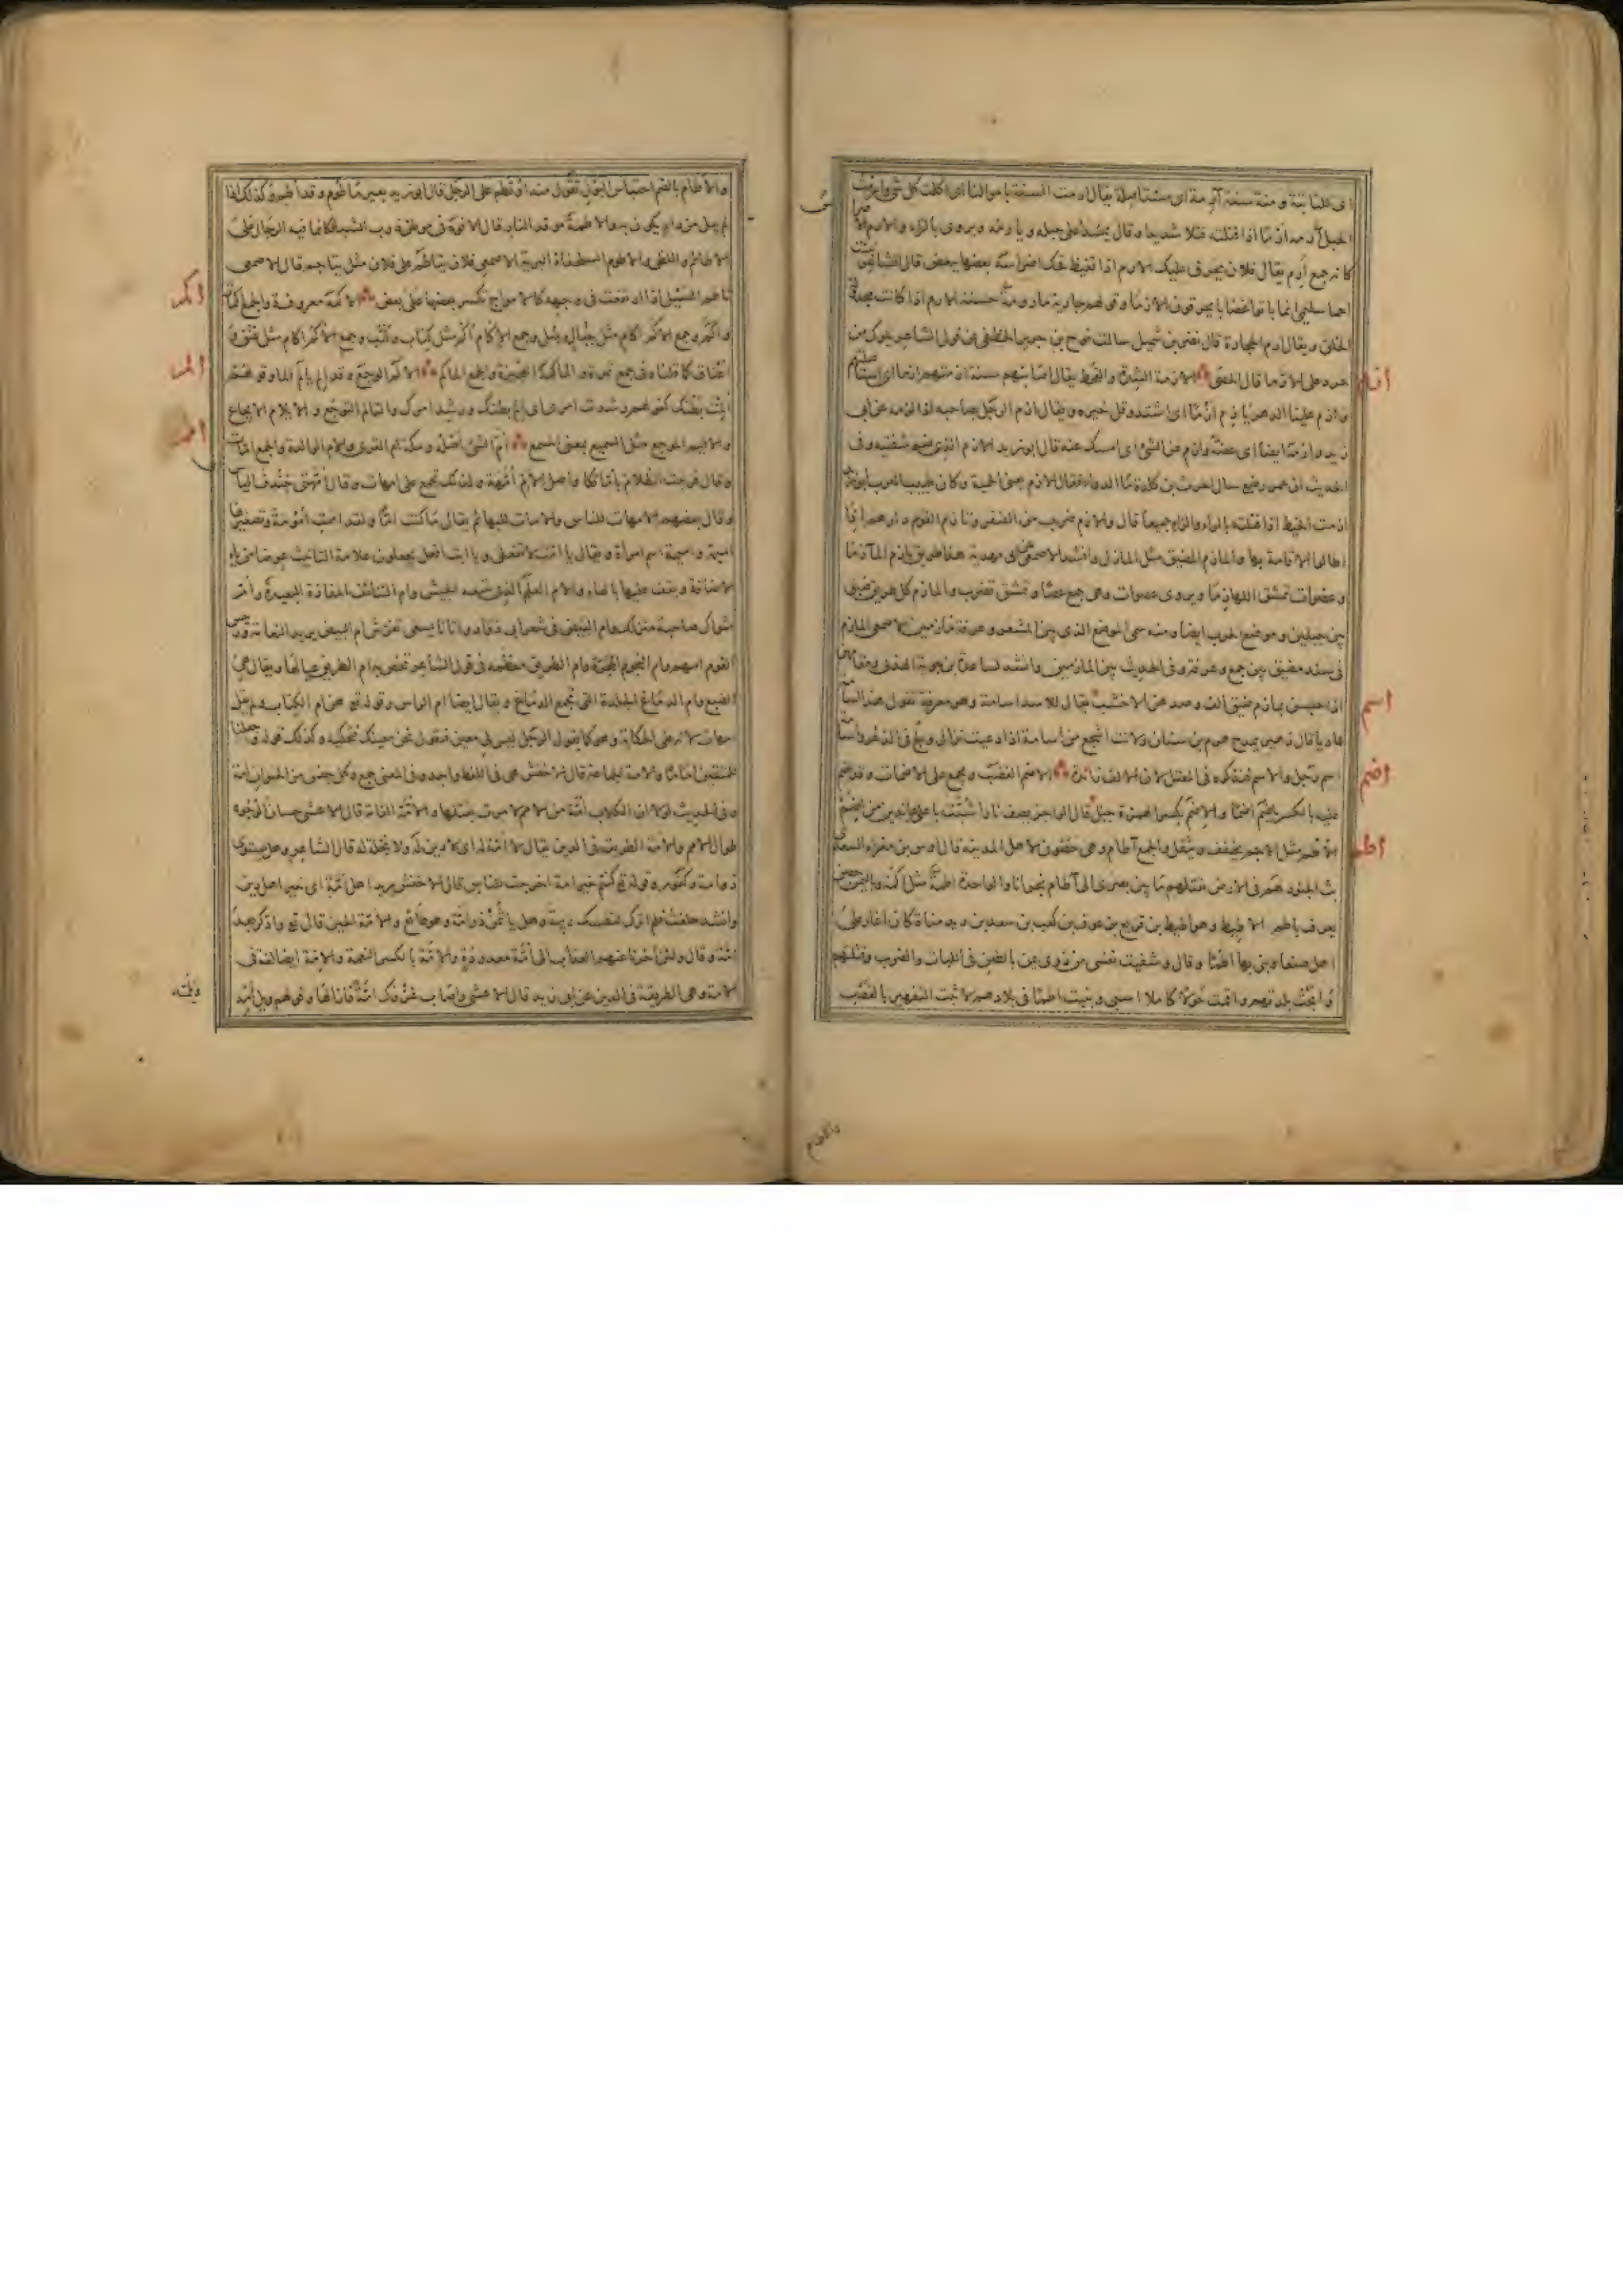 اى للنابتة ومنة سنة آرمة اى مستاصلة يقال ارمت السنة باموالنا اى اكلت كل شئ وارمت
الحبل آرمه ارما اذا فتلته فتلا شديدا وقال يمسد على جبله ويارمه ويروى بالزاء والارم
يقال فلان يحرق عليك الارم اذا تغيظ فحك اضراسه بعضها ببعض قال الشاعر
احما سليمى انما باتوا غضابا يحرقون الارما وقولهم جارية مارومة حسنة الارم اذا كانت مجدولة
الخلق ويقال ارم الحجارة قال نضر بن شميل سالت نوح بن جرير الخطفى عن قول الشاعر يلوك من
حرد على الارما قال الحصى الازمة الشدة والقحط يقال اصابتهم سنة ازمتهم ازما اى استاصلتهم
وازم علينا الدهر يازم ازما اى اشتد وقل خيره ويقال ازم الرجل بصاحبه اذا لزمه عن ابى
زيد وازمه ايضا اى عضه وازم عن الشئ اى امسك عنه قال ابو زيد الازم الذى ضم شفتيه وفى
الحديث ان عمر رضع سال الحرث بن كلدة ما الدواء فقال الازم يعنى الحمية وكان طبيب العرب ابو زيد
ازمت الخيط اذا فتلته بالراء والزاء جميعا قال والازم ضرب من الضفر وتازم القوم دارهم اذا
اطالوا الاقامة بها والمازم المضيق مثل المازل وانشد الاصمعى عن ابى مهدية هذا طريق يازم المآزما
وعضوات تمشق اللهازما ويروى عصوات وهى جمع عصا وتمشق تضرب والمازم كل طريق ضيق
بين جبلين وموضع الحرب ايضا ومنه سمى الموضع الذى بين المشعر وعرفة مازمين الاصمعى المازم
فى سند مضيق بين جمع وعرفة وفى الحديث بين المازمين وانشد لساعدة بن جوية الهذلى ومقامهن
اذا حبسن بمازم ضيق الف وصدهن الاخشب يقال للاسد اسامة وهو معرفة تقول هذا اسامة
عاديا قال زهير يمدح هرم بن سنان ولانت اشجع من اسامة اذا دعيت نزال ولج فى الذعر واسماء
اسم رجل والاسم نذكره فى المعتل لان الالف زائدة الاضم الغضب ويجمع على الاضمات وقد اضم
عليه بالكسر ياضم اضما والاضم بكسر الهمزة جبل قال الراجز يصف نارا شبت باعلى عاندين من اضم
الاطم مثل الاجم يخفف ويثقل والجمع آطام وهى حصون لاهل المدينة قال اوس بن مغراء السعدى
بث الجنود لهم فى الارض يقتلهم ما بين بصرى الى آطام نجرانا والواحدة اطمة مثل اكمة وباليمن حصن
يعرف باطم الاضبط وهو اضبط بن قريع بن عوف بن كعب بن سعد بن زيد مناة كان اغار على
اهل صنعا وبنى بها اطما وقال وشفيت نفسى من ذوى يمن بالطعن فى اللبات والضرب وقتلتهم
وابحت بلدتهم واقمت حولا كاملا اسبى وبنيت اطما فى بلادهم لاثبت التقهير بالغصب
اسم
اضم
اطم
والاطام
والاطام بالضم احتباس البول تقول منه اؤتطم على الرجل قال ابو زيد بعير ماطوم وقد اطم وكذلك اذا
لم يبل من داء يكون به والاطمة موقد النار قال الافوه فى موطن ذرب الشبا كانما فيه الرجال على
الاطائم واللظى والاطوم السلحفاة البحرية الاصمعى فلان يتاطم على فلان مثل يتاجم قال الاصمعى
تاطم السيل اذا ارتفعت فى وجهه كالامواج تكسر بعضها على بعض الاكمة معروفة والجمع اكمات
واكم وجمع الاكم اكام مثل جبال وجبل وجمع الاكام اكم مثل كتاب وكتب وجمع الاكم اكام مثل عنق و
اعناق كما قلناه فى جمع تمرة والماكمة العجيزة والجمع الماكم الالم الوجع وقد الم يالم الما وقولهم
المت بطنك كقولهم رشدت امرك اى الم بطنك ورشد امرك والتالم التوجع والايلام الايجاع
والاليم الموجع مثل السميع بمعنى المسمع ام الشئ اصله ومكة ام القرى والام الوالدة والجمع امات
وقال فرجت الظلام باماتكا واصل الام امهة ولذلك تجمع على امهات وقال امهتى خندف والياس
وقال بعضهم الامهات للناس والامات للبهائم يقال ما كنت اما ولقد اممت امومة وتصغيرها
اميمة واميمة اسم امراة ويقال يا امت لا تفعلى ويا ابت افعل يجعلون علامة التانيث عوضا من ياء
الاضافة ويقف عليها بالهاء والام العلم الذى يتبعه الجيش وام التنائف المفازة البعيدة وام
مثواك صاحبة منزلك وام البيض فى شعر ابى دواد واتانا يسعى تفرش ام البيض يريد النعامة ورئيس
القوم امهم وام النجوم المجرة وام الطريق معظمه فى قول الشاعر تخص به ام الطريق عيالها ويقال هى
الضبع وام الدماغ الجلدة التى تجمع الدماغ ويقال ايضا ام الراس وقوله تع هن ام الكتاب ولم يقل
امهات لانه على الحكاية وهو كما يقول الرجل ليس لى معين فنقول نحن معينك فتحكيه وكذلك قوله واجعلنا
للمتقين اماما والامة الجماعة قال الاخفش هى فى اللفظ واحد وفى المعنى جمع وكل جنس من الحيوان امة
وفى الحديث لولا ان الكلاب امة من الامم لامرت بقتلها والامة القامة قال الاعشى حسان الوجوه
طوال الامم والامة الطريقة فى الدين يقال لا امة له اى لا دين له ولا نحلة له قال الشاعر وهل يستوى
ذو امة وكفور وقوله تع كنتم خير امة اخرجت للناس قال الاخفش يريد اهل امة اى خير اهل دين
وانشد حلفت فلم اترك لنفسك ريبة وهل ياثمن ذو امة وهو طائع والامة الحين قال تع وادكر بعد
امة وقال ولئن اخرنا عنهم العذاب الى امة معدودة والامة بالكسر النعمة والامة ايضا لغة فى
الامة وهى الطريقة فى الدين عن ابى زيد قال الاعشى واصاب غزوك امة فازالها وقولهم ويل امه
اكم
الم
امم